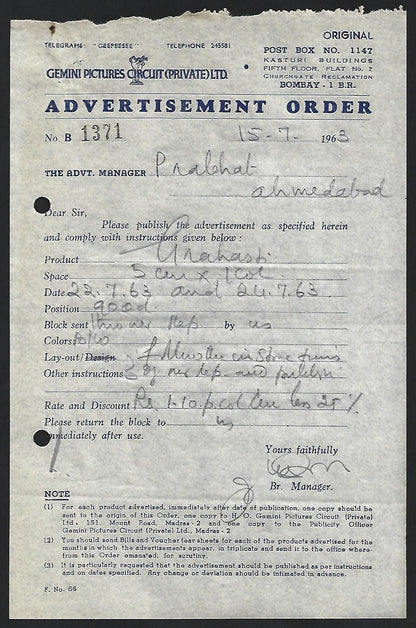 ORIGINAL
TELEGRAMS: "GEEPEESEE" TELEPHONE 245581
POST BOX NO. 1147
KASTURI BUILDINGS
FIFTH FLOOR, FLAT No. 2
CHURCHGATE RECLAMATION
BOMBAY - 1 B.R.
GEMINI PICTURES CIRCUIT (PRIVATE) LTD.
ADVERTISEMENT ORDER
No. B 1371 15-7- 1963
THE ADVT. MANAGER Prabhat
ahmedabad
Dear Sir,
Please publish the advertisement as specified herein
and comply with instructions given below :
Product Grahasti
Space 5 cm x 1 col.
Date 22.7.63 and 24.7.63
Position good
Block sent thro our Rep by us
Colors
Lay-out/Design
Other instructions our rep- and
Rate and Discount Rs. 1.10.p. col less 25%
Please return the block to us
immediately after use.
Yours faithfully
Br. Manager.
NOTE
(1) For each product advertised, immediately after date of publication, one copy should be
sent to the origin of this Order, one copy to H.O. Gemini Pictures Circuit (Private)
Ltd., 151, Mount Road, Madras - 2 and one copy to the Publicity Officer
Gemini Pictures Circuit (Private) Ltd., Madras - 2
(2) You should send Bills and Voucher tear sheets for each of the products advertised for the
months in which the advertisements appear, in triplicate and send it to the office where-
from this Order emanated, for scrutiny.
(3) It is particularly requested that the advertisement should be published as per instructions
and on dates specified. Any change or deviation should be intimated in advance.
F. No. 66